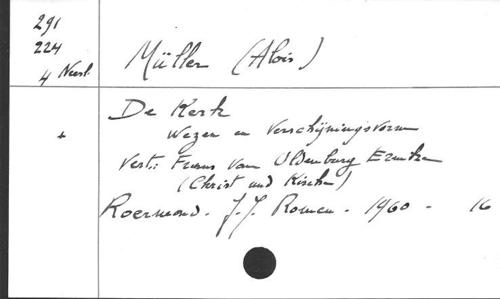 291
224
4 Neerl.
Müller (Alois)
De Kerk
+ Wezen en Verschijningsvorm
Vert.: Frans van Oldenburg Ermke
(Christ und Kirche)
Roermond. J.J. Romen. 1960 - 16